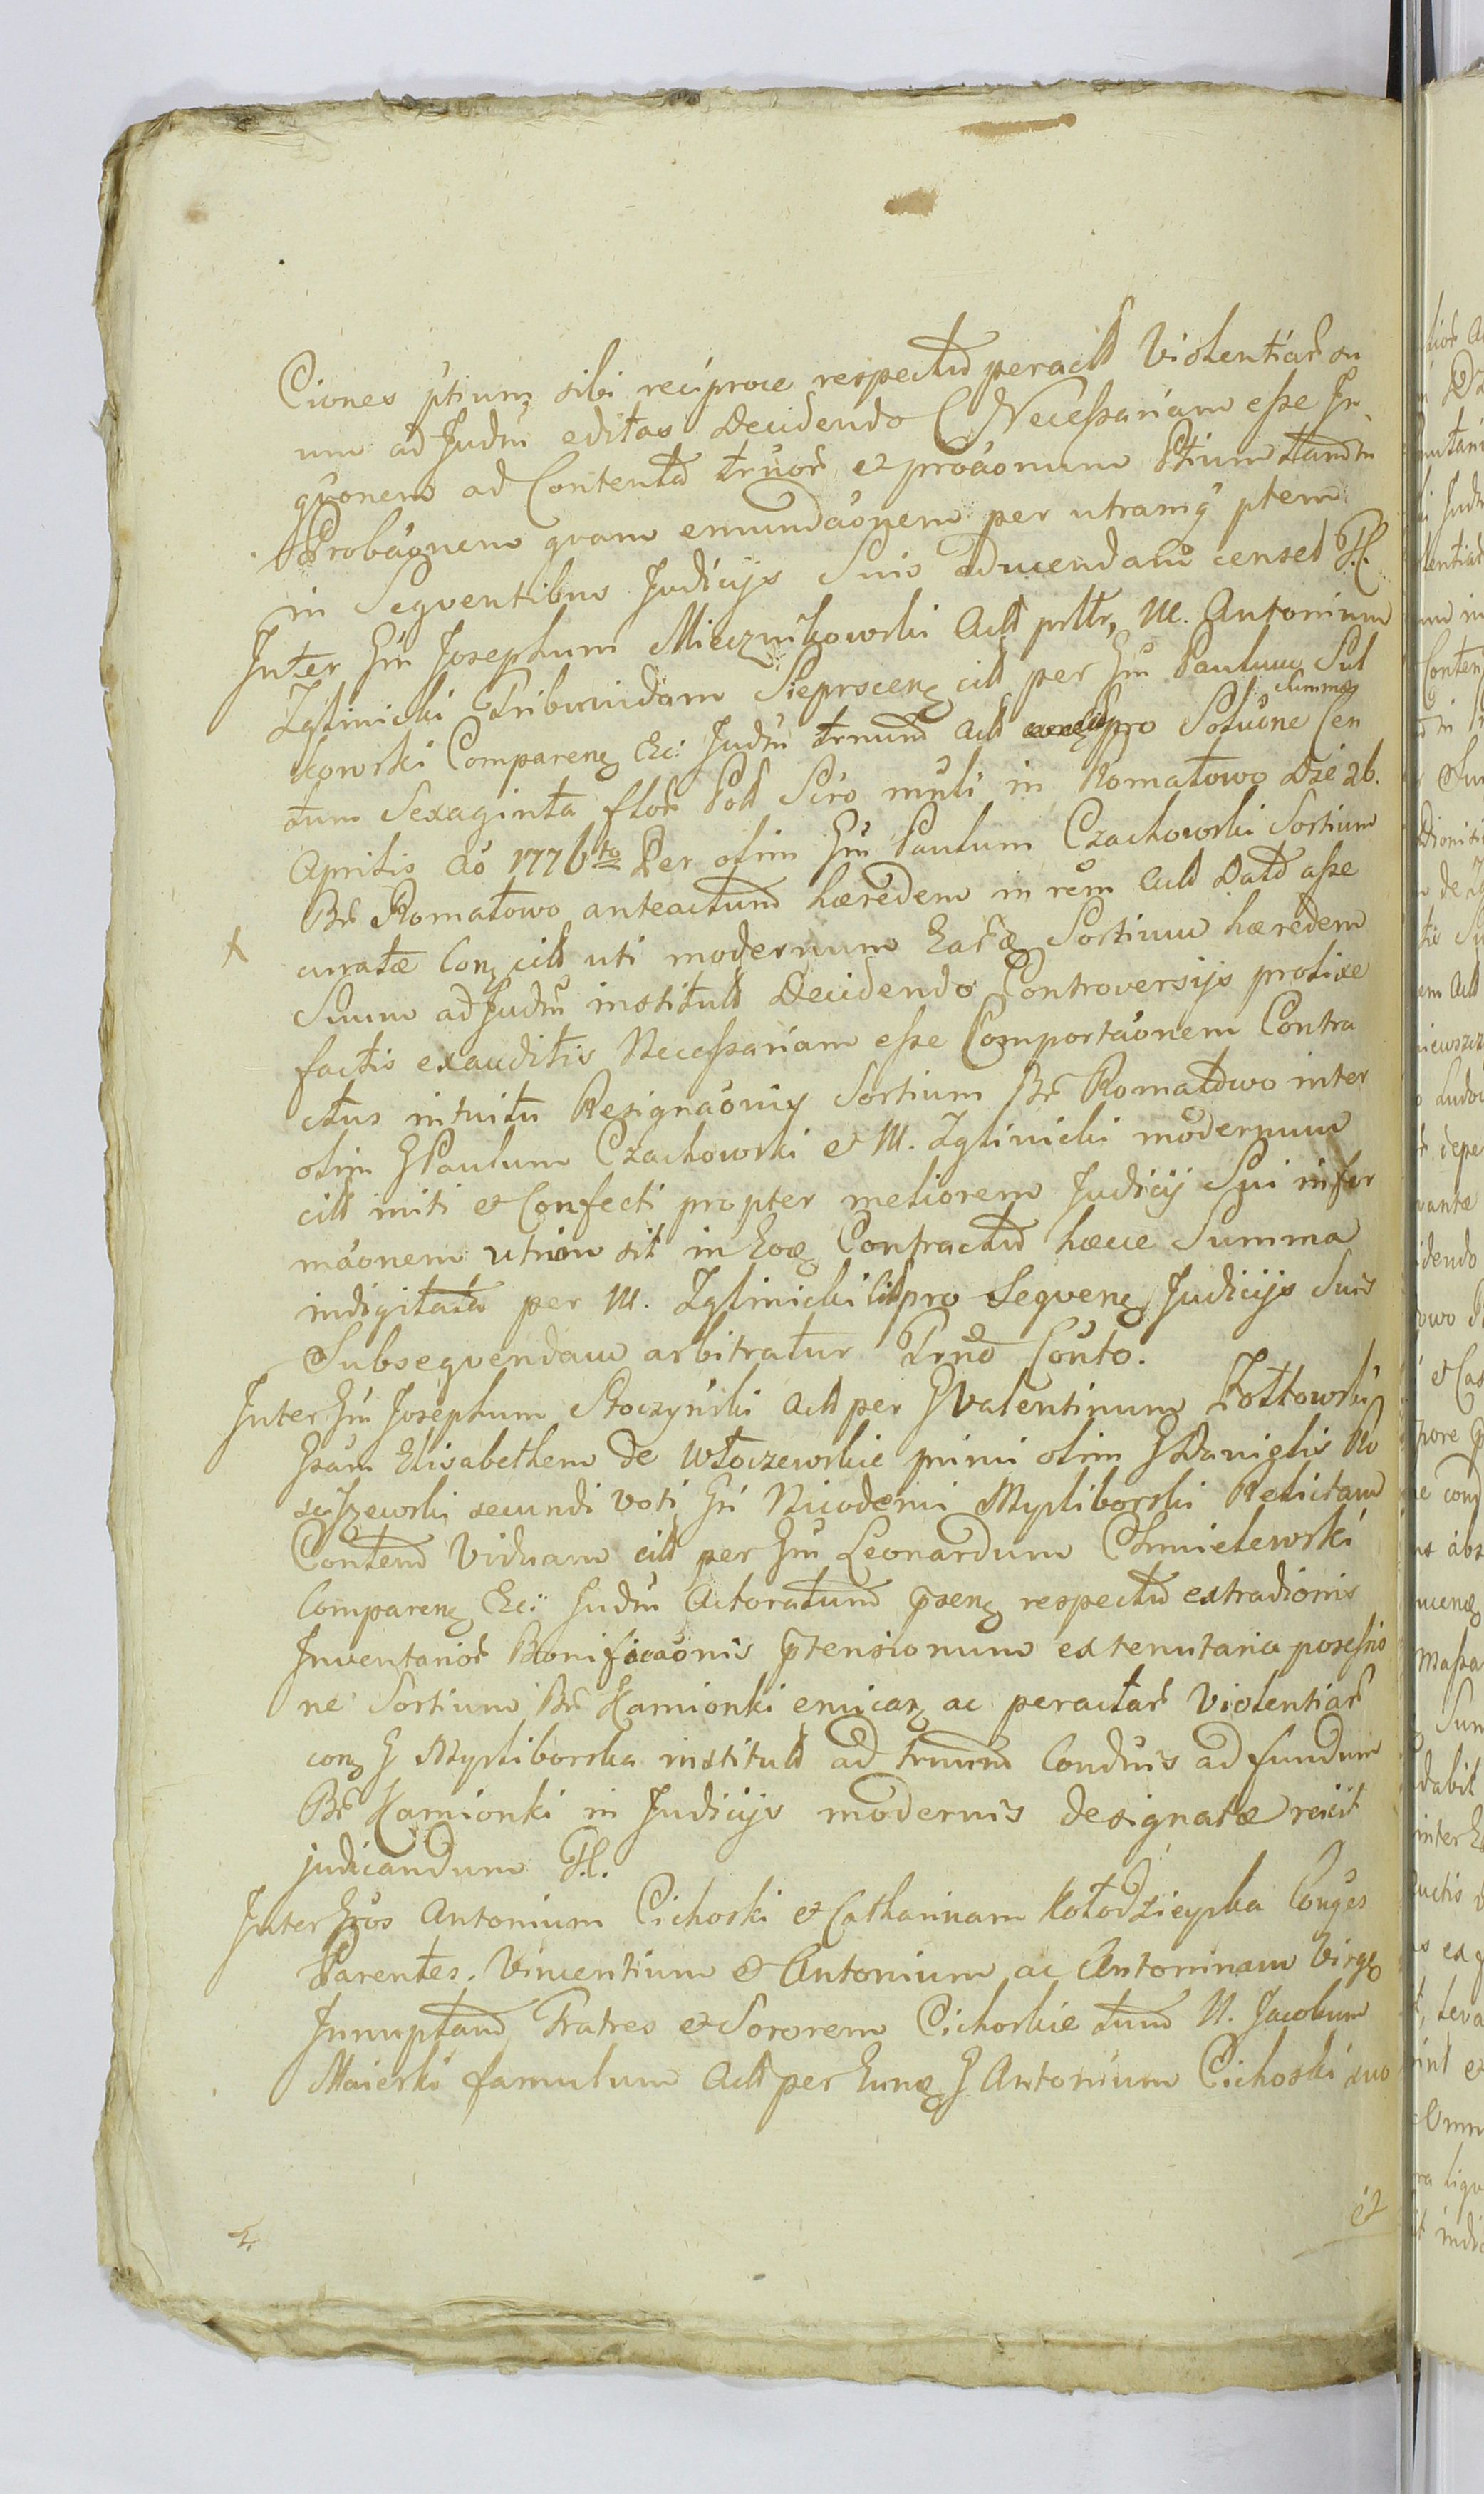 Ciones ptium sibi reciproce respectu peract Violentiar su
um ad Judm editas Decidendo Necessariam esse In
quonem ad Contenta truor et proaonum Ptium tam
Probaonem quam emundaonem per utramq ptem
in Sequentibus Judicijs Suis adducendam censet Pl.
Inter Gm Josephum Mieczników­ski Act M. Antonium
Zglinicki Tribunidam Sieprscen cit per Gm Paulum Sul
kowski Comparen Ec: Judm trnum Act pro Solvone Summæ Cen
tum Sexaginta flor Poll Scro mnli in Romatowo Die 26.
Aprilis Ao 1776to Per olim Gm Paulum Czachowski Sortium
Br Romatowo anteactum hæredem in rem Act Dat asse
x
curatæ Con cit uti modernum Ear Sortium hæredem
Suum ad Judm institut Decidendo Controversijs prolixe
factis exauditis Necessariam esse Comportaonem Contra
ctus intuitu Resignaonis Sortium Br Romatowo inter
olim G Paulum Czachowski et M. Zglinicki modernum
cit initi et Confecti propter meliorem Judicij Sui infor
maonem utrum sit in Eo Contractu hæcce Summa
indigitata per M. Zglinicki Cit pro Sequen Judicijs Suis
Subsequendam arbitratur Trno Conto.
Inter Gm Josephum Stoczyński Act per G Valentinum Zołtowski
Gsam Elisabethem de Włoczewskie primi olim G Danielis Ro
sciszewski secundi voti Gi Nicodemi Mysliborski Relictam
Contem Viduam cit per Gm Leonardum Chmielewski
Comparen Ec: Judm Actoratum psen respectu extradionis
Inventarior Bonificaonis ptensionum ex tenutaria possessio
ne Sortium Br Kamionki emican ac peractar Violentiar
con G Mysliborska institut ad trnum Conduis ad fundum
Br Kamionki in Judicijs modernis designatæ reicit
judicandum Pl.
Inter Gnos Antonium Cichoski et Catharinam Kołodzieyska Conges
Parentes, Vincentium et Antonium ac Antoninam Virg
Innuptam Fratres et Sororem Cichoskie tum N. Jacobum
Maierski famulum Act per Eun G Antonium Cichoski suo
et